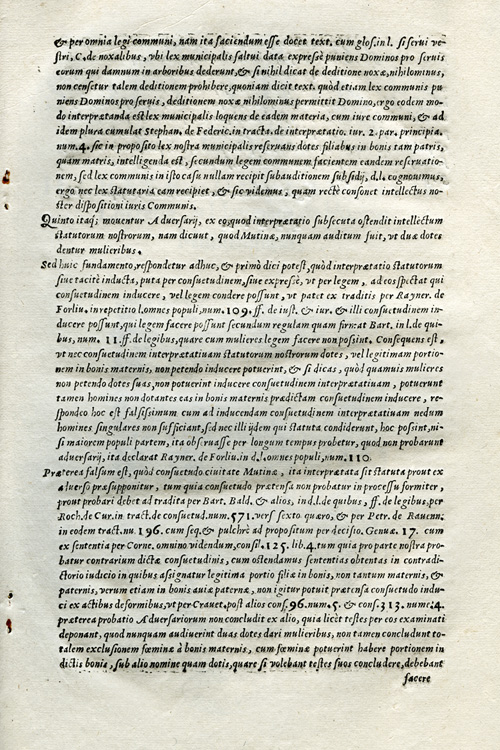 & per omnia legi communi, nam ita faciendum esse docet text. C. de glos. in l. si serui ve-
stri, C. de noxalibus, vbi lex municipalis saltui data expressè puniens Dominos pro seruis
eorum qui damnum in arboribus dederunt, & si nihil dicat de deditione noxæ, nihilominus,
non censetur talem deditionem prohibere, quoniam dicit text. quòd etiam lex communis pu
niens Dominos pro seruis, deditionem noxæ nihilominus permittit Domino, ergo eodem mo-
do interpretanda est lex municipalis loquens de eadem materia, cum iure communi, & ad
idem plura cumulat Stephan. de Federic. in tract. de interpretatio. iur. 2. par. principia.
num. 4. sic in proposito lex nostra municipalis reseruans dotes filiabus in bonis tam patris,
quam matris, intelligenda est, secundum legem communem facientem eandem reseruatio-
nem, sed lex communis in isto casu nullam recipit subauditionem subsidij, d.l. cognouimus,
ergo nec lex statutaria eam recipiet, & sic videmus, quam rectè consonet intellectus no-
ster dispositioni iuris Communis.
Quinto itaq; mouentur Aduersarij, ex eo, quod interpretatio subsecuta ostendit intellectum
statutorum nostrorum, nam dicunt, quod Mutinæ, nunquam auditum fuit, vt duæ dotes
dentur mulieribus.
Sed huic fundamento, respondetur adhuc, & primò dici potest, quòd interpretatio statutorum
siue tacitè inducta, puta per consuetudinem, siue expressè, vt per legem, ad eos spectat qui
consuetudinem inducere, vel legem condere possunt, vt patet ex traditis per Rayner. de
Forliu. in repetitio l. omnes populi, num. 109. ff. de iust. & iur. & illi consuetudinem in-
ducere possunt, qui legem facere possunt secundum regulam quam firmat Bart. in l. de qui-
bus, num. 11. ff. de legibus, quare cum mulieres legem facere non possint. Consequens est,
vt nec consuetudinem interpretatiuam statutorum nostrorum dotes, vel legitimam portio-
nem in bonis maternis, non petendo inducere potuerint, & si dicas, quòd quamuis mulieres
non petendo dotes suas, non potuerint inducere consuetudinem interpretatiuam, potuerunt
tamen homines non dotantes eas in bonis maternis prædictam consuetudinem inducere, re-
spondeo hoc est falsissimum cum ad inducendam consuetudinem interpretatiuam nedum
homines singulares non sufficiant, sed nec illi ijdem qui statuta condiderunt, hoc possint, ni-
si maiorem populi partem, ita obseruasse per longum tempus probetur, quod non probarunt
aduersarij, ita declarat Rayner. de Forliu. in d.l. omnes populi, num. 110.
Præterea falsum est, quòd consuetudo ciuitate Mutinæ, ita interpretata sit statuta prout ex
aduerso præsupponitur, tum quia consuetudo prætensa non probatur in processu formiter,
prout probari debet ad tradita per Bart. Bald. & alios, in d.l. de quibus, ff. de legibus, per
Roch. de Cur. in tract. de consuetud. num. 571. vers. sexto quæro, & per Petr. de Rauenn.
in eodem tract. nu. 196. cum seq. & pulchrè ad propositum per decisio. Genuæ. 17. cum
ex sententia per Corne. omnino videndum, consil. 125. lib. 4. tum quia pro parte nostra pro-
batur contrarium dictæ consuetudinis, cum ostendamus sententias obtentas in contradi-
ctorio iudicio in quibus assignatur legitima portio filiæ in bonis, non tantum maternis, &
paternis, verum etiam in bonis auiæ paternæ, non igitur potuit prætensa consuetudo indu-
ci ex actibus deformibus, vt per Crauet. post alios cons. 96. num. 5. & cons. 313. nume: 4.
præterea probatio Aduersariorum non concludit ex alio, quia licèt testes per eos examinati
deponant, quod nunquam audiuerint duas dotes dari mulieribus, non tamen concludunt to-
talem exclusionem fœminæ à bonis maternis, cum fœminæ potuerint habere portionem in
dictis bonis, sub alio nomine quam dotis, quare si volebant testes suos concludere, debebant
facere